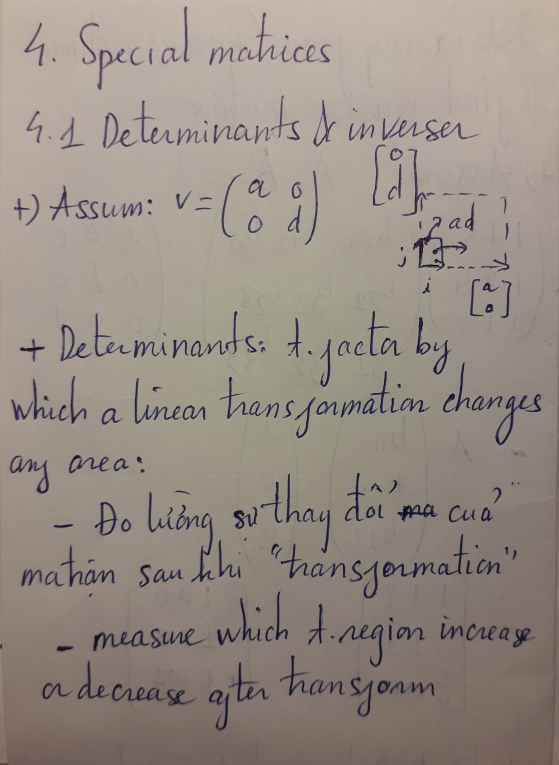 4. Special matrices
4.1 Determinants & inverser
[0
d]
+) Assum: v = (a 0
0 d)
ad
j
i
[a
0]
+ Determinants: t. factor by
which a linear transformation changes
any area:
- Đo lường sự thay đổi ma của
matrận sau khi "transformation"
- measure which t. region increase
or decrease after transform